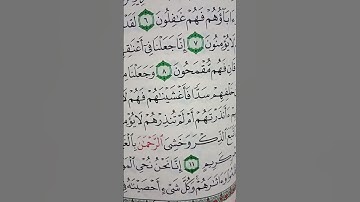 ءَابَآؤُهُمْ فَهُمْ غَٰفِلُونَ ٦ لَقَدْ
لَا يُؤْمِنُونَ ٧ إِنَّا جَعَلْنَا فِىٓ أَعْنَٰقِ
فَهُم مُّقْمَحُونَ ٨ وَجَعَلْنَا
خَلْفِهِمْ سَدًّا فَأَغْشَيْنَٰهُمْ فَهُمْ
ءَأَنذَرْتَهُمْ أَمْ لَمْ تُنذِرْهُمْ لَا
ٱلذِّكْرَ وَخَشِىَ ٱلرَّحْمَٰنَ
كَرِيمٍ ١١ إِنَّا نَحْنُ نُحْىِ
وَءَاثَٰرَهُمْ وَكُلَّ شَىْءٍ أَحْصَيْنَٰهُ